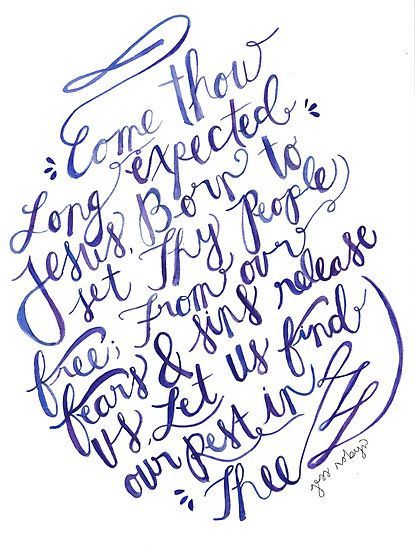 "Come thou
Long expected"
Jesus, Born to
set Thy People
free; From our
fears & sins release
us, Let us find
our rest in
"Thee